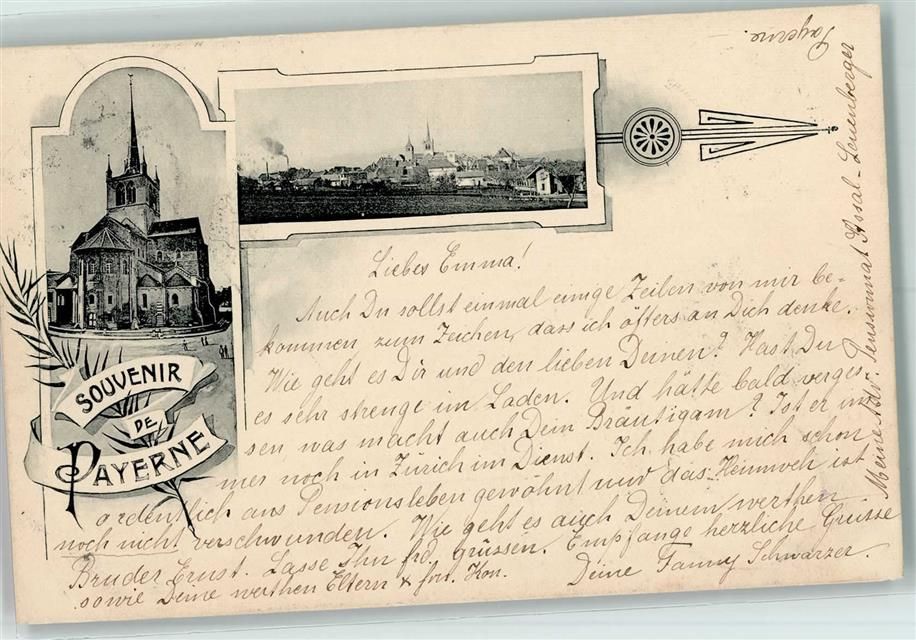 SOUVENIR
DE
PAYERNE
Liebes Emma!
Auch Du sollst einmal einige Zeilen von mir be-
kommen zum Zeichen, dass ich öfters an Dich denke.
Wie geht es Dir und den lieben Deinen? Hast Du
es sehr strenge im Laden. Und hätte bald verges
sen was macht auch Dein Bräutigam? Ist er im
mer noch in Zürich im Dienst. Ich habe mich schon
ordentlich ans Pensionsleben gewöhnt und das Heimweh ist
noch nicht verschwunden. Wie geht es auch Deinem werthen
Bruder Ernst. Lasse Ihn frd. grüssen. Empfange herzliche Grüsse
sowie Deine werthen Eltern
Deine Fanny Schwarzer.
Meine Adr. Pensionnat Assal-Leuenberger
Payerne.